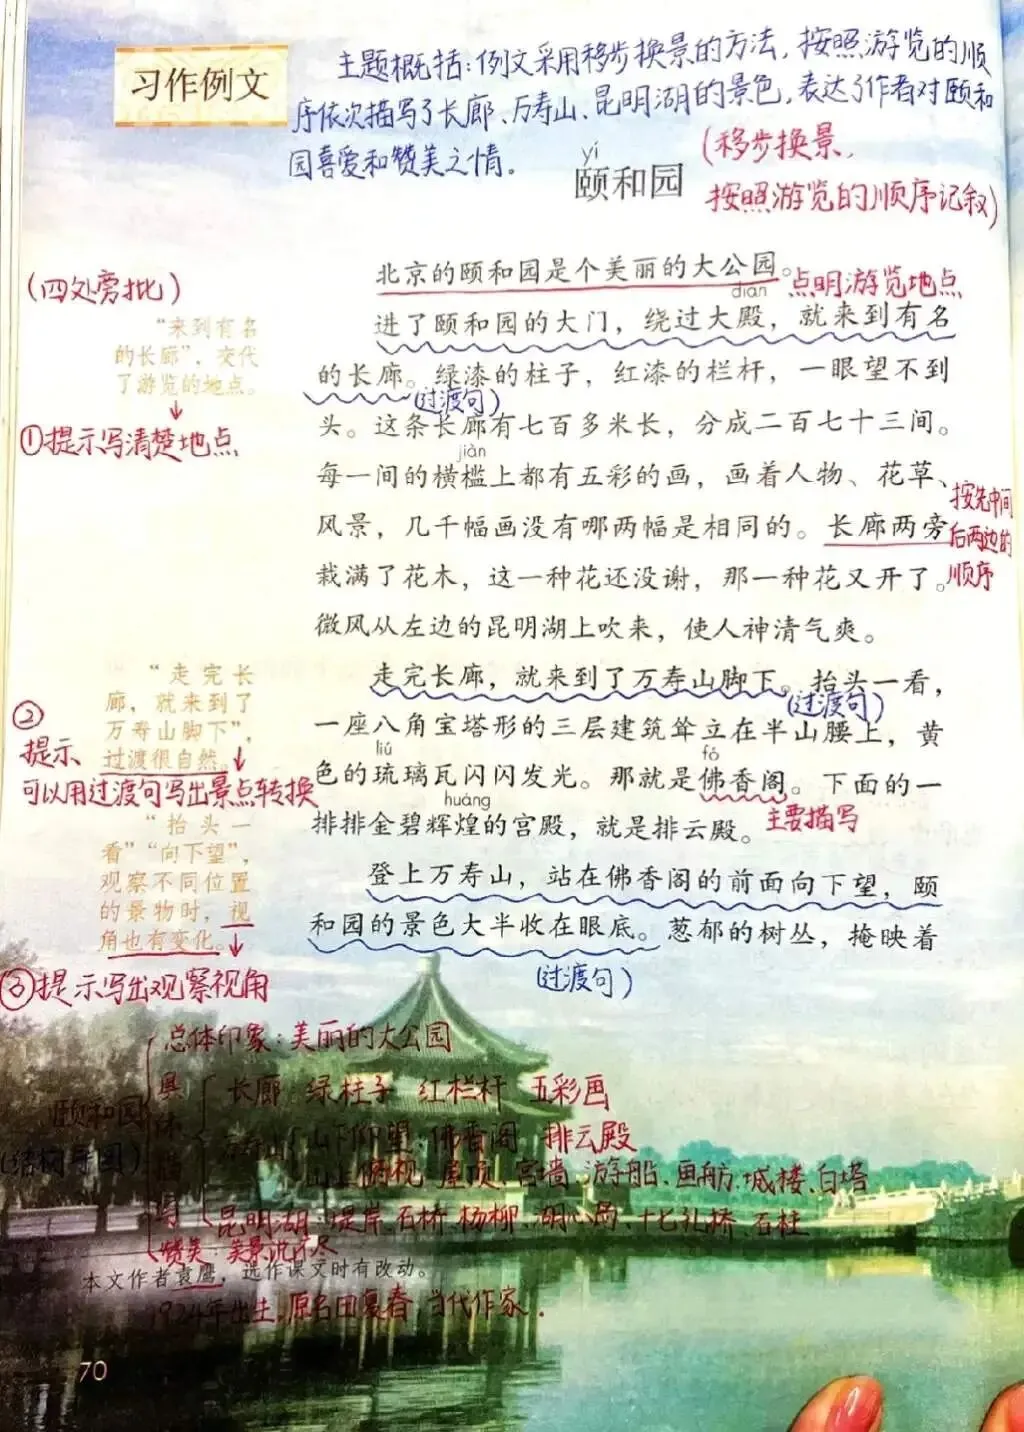 习作例文
主题概括：例文采用移步换景的方法，按照游览的顺
序依次描写了长廊、万寿山、昆明湖的景色，表达了作者对颐和
园喜爱和赞美之情。
yí
颐和园
（移步换景，
按照游览的顺序记叙）
北京的颐和园是个美丽的大公园。
点明游览地点
（四处旁批）
diàn
进了颐和园的大门，绕过大殿，就来到有名
的长廊。绿漆的柱子，红漆的栏杆，一眼望不到
（过渡句）
头。这条长廊有七百多米长，分成二百七十三间。
jiàn
每一间的横槛上都有五彩的画，画着人物、花草、
风景，几千幅画没有哪两幅是相同的。长廊两旁
栽满了花木，这一种花还没谢，那一种花又开了。
微风从左边的昆明湖上吹来，使人神清气爽。
按先中间
后两边的
顺序
“来到有名
的长廊”，交代
了游览的地点。
①提示写清楚地点
走完长廊，就来到了万寿山脚下。抬头一看，
（过渡句）
一座八角宝塔形的三层建筑耸立在半山腰上，黄
liú
fó
色的琉璃瓦闪闪发光。那就是佛香阁。下面的一
huáng
排排金碧辉煌的宫殿，就是排云殿。
主要描写
“走完长
廊，就来到了
万寿山脚下”，
过渡很自然。
②
提示
可以用过渡句写出景点转换
登上万寿山，站在佛香阁的前面向下望，颐
和园的景色大半收在眼底。葱郁的树丛，掩映着
（过渡句）
“抬头一
看”“向下望”，
观察不同位置
的景物时，视
角也有变化。
③提示写出观察视角
颐和园
（结构导图）
总体印象：美丽的大公园
具体描写
长廊 绿柱子 红栏杆 五彩画
万寿山 山下仰望 佛香阁 排云殿
山上俯视 屋顶、宫墙、游船、画舫、城楼、白塔
昆明湖 堤岸、石桥、杨柳、湖心岛、十七孔桥、石柱
赞美：美景说不尽
本文作者袁鹰，选作课文时有改动。
1924年出生，原名田复春，当代作家.
70